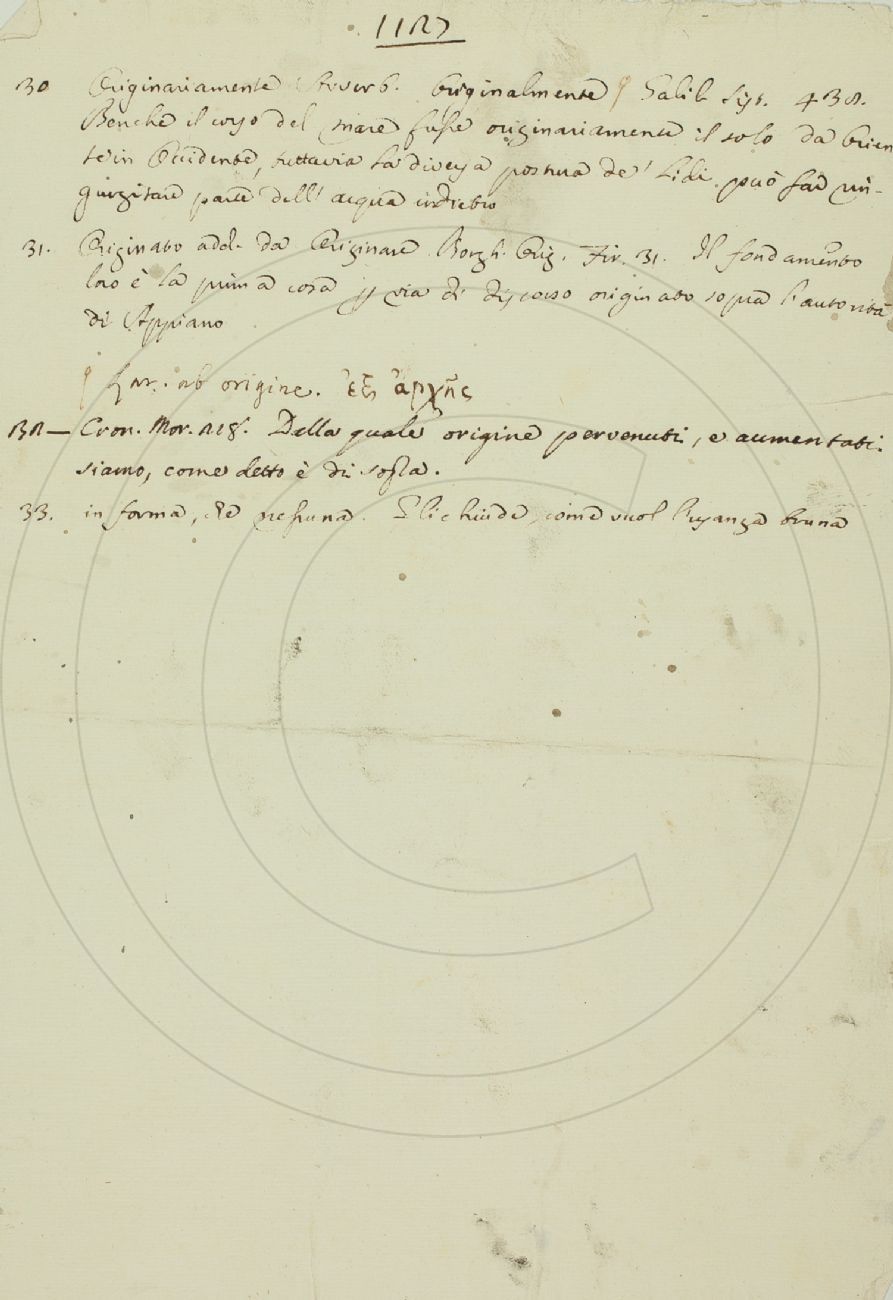 1127
30 Originariamente Avverb. Originalmente ¶ Galil. Sist. 432.
Benchè il corso del mare fusse originariamente il solo da Orien
te in Occidente, tuttavia la diversa postura de' Lidi può far rin-
gurgitare parte dell'acqua indietro
31. Originato add. da Originare. Borgh. Orig. Fir. 31. Il fondamento
loro è la prima cosa p via di discorso originato sopra l'autorità
di Appiano
¶ Lat. ab origine. ἐξ ἀρχῆς
32 — Cron. Mor. 218. Dalla quale origine pervenuti, e aumentati
siamo, come detto è di sopra.
33. in forma, che nessuna. Gli chiude, come vuol l'usanza bruna